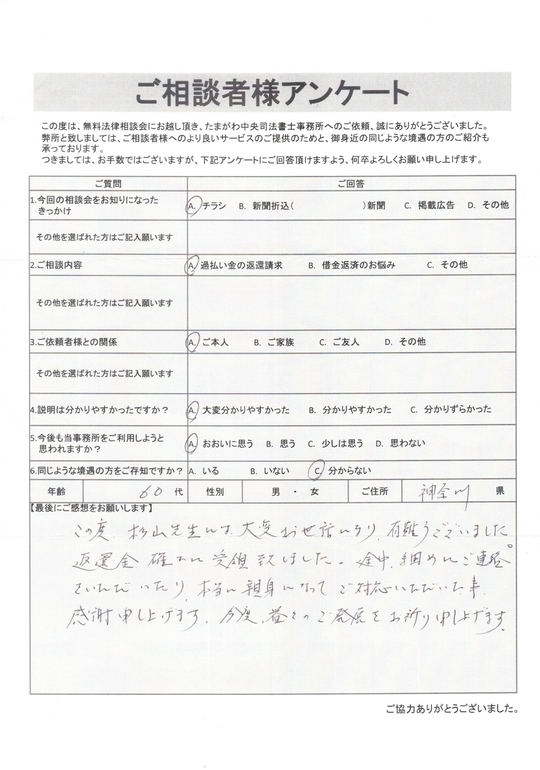 ご相談者様アンケート
この度は、無料法律相談会にお越し頂き、たまがわ中央司法書士事務所へのご依頼、誠にありがとうございました。
弊所と致しましては、ご相談者様へのより良いサービスのご提供のためと、御身近の同じような境遇の方のご紹介も
承っております。
つきましては、お手数ではございますが、下記アンケートにご回答頂けますよう、何卒よろしくお願い申し上げます。
ご質問 ご回答
1.今回の相談会をお知りになった きっかけ A. チラシ B. 新聞折込( )新聞 C. 掲載広告 D. その他
その他を選ばれた方はご記入願います
2.ご相談内容 A. 過払い金の返還請求 B. 借金返済のお悩み C. その他
その他を選ばれた方はご記入願います
3.ご依頼者様との関係 A. ご本人 B. ご家族 C. ご友人 D. その他
その他を選ばれた方はご記入願います
4.説明は分かりやすかったですか? A. 大変分かりやすかった B. 分かりやすかった C. 分かりずらかった
5.今後も当事務所をご利用しようと 思われますか? A. おおいに思う B. 思う C. 少しは思う D. 思わない
6.同じような境遇の方をご存知ですか? A. いる B. いない C. 分からない
年齢 60 代 性別 男 ・ 女 ご住所 神奈川 県
【最後にご感想をお願いします】
この度、杉山先生には、大変お世話になり、有難うございました。
返還金 確かに受領致しました。途中、細めにご連絡
をいただいたり、本当に親身になってご対応いただいた事
感謝申し上げます。今後、益々のご発展をお祈り申し上げます。
ご協力ありがとうございました。